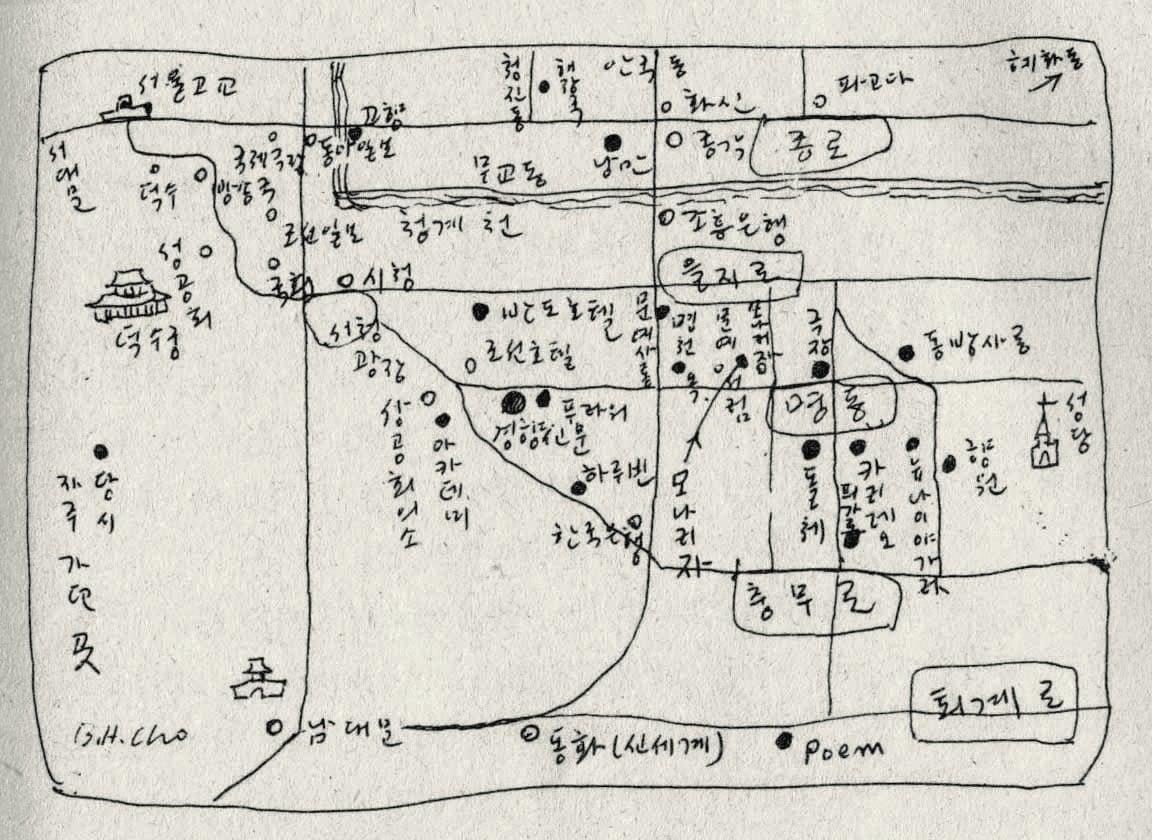 서울고교
청진동
해장국
안국동
화신
파고다
혜화동
서대문
덕수
국제극장
동아일보
무교동
낭만
종각
종로
방송국
조선일보
청계천
조흥은행
을지로
성공회
덕수궁
국회
시청
시청
광장
반도호텔
조선호텔
문예사롱
명천옥
문예서점
극장
동방사롱
명동
성당
경향신문
푸라워
상공회의소
아카데미
하루빈
한국은행
모나리자
돌체
카리레오
휘가로
뉴나이아가라
향원
충무로
당시
자주 가던 곳
퇴계로
B.H.Cho
남대문
동화(신세계)
poem